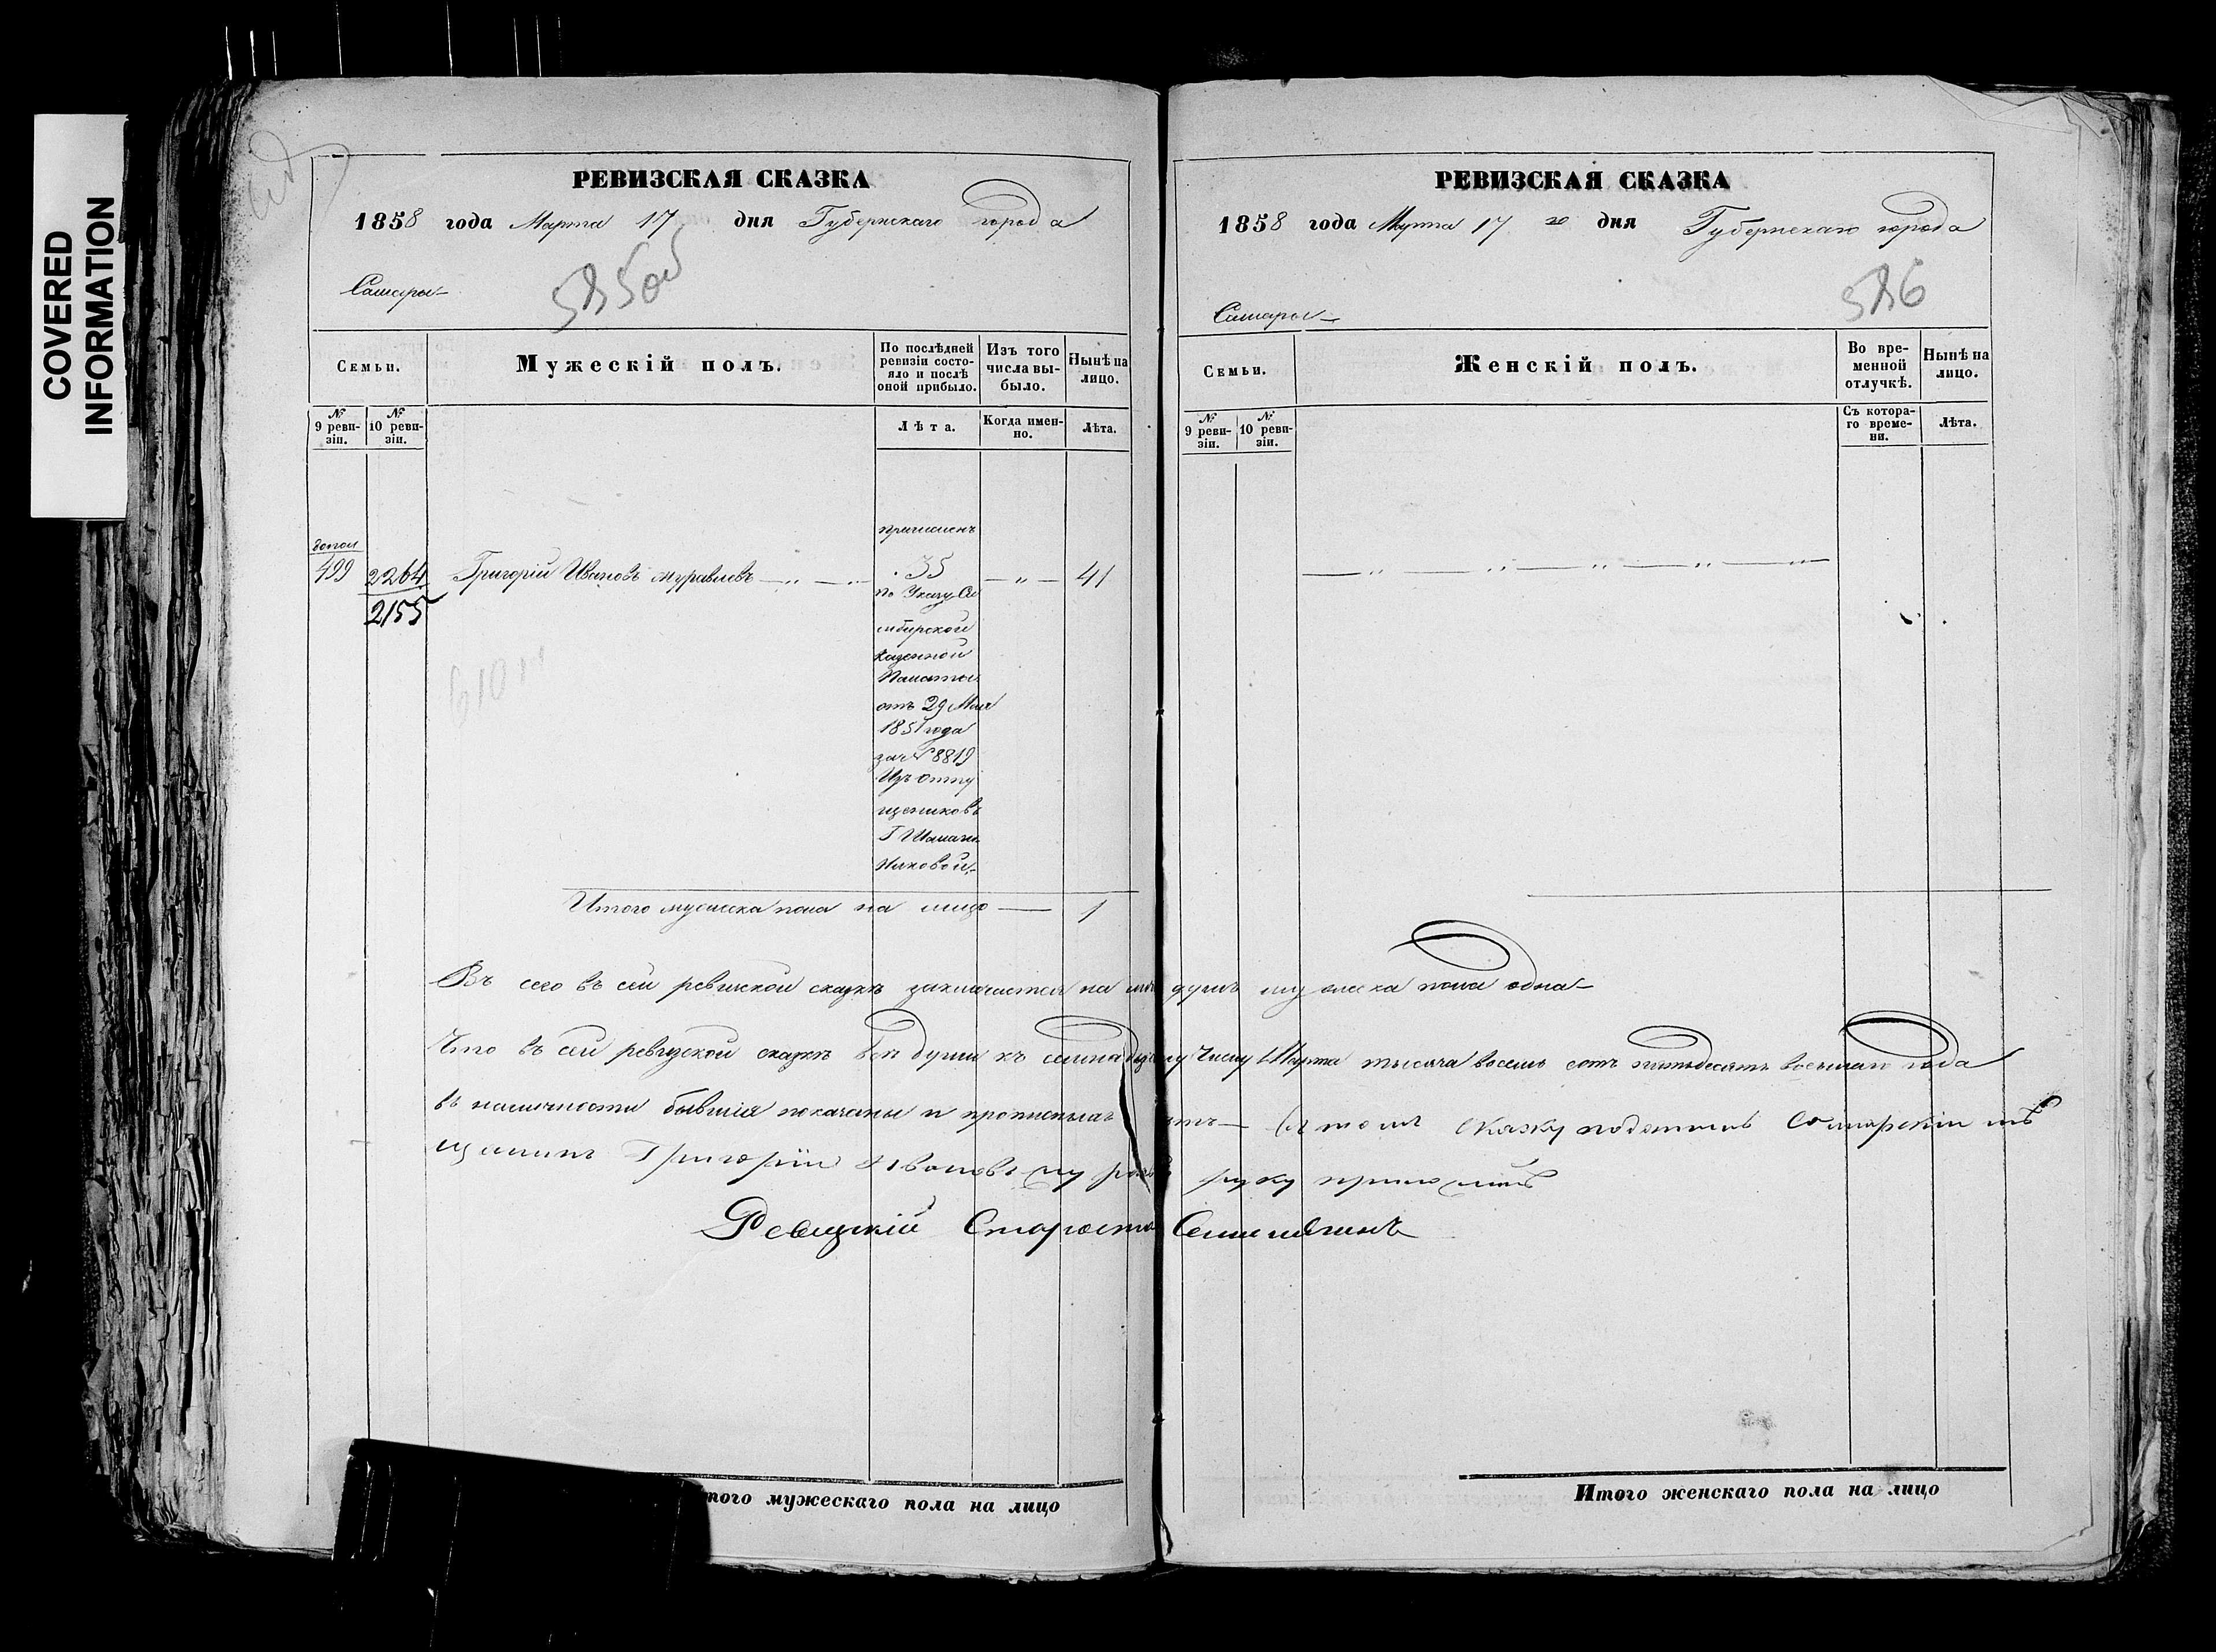 COVERED
INFORMATION
РЕВИЗСКАЯ СКАЗКА
1858 года Марта 17 дня Губернскаго города
Самары
585 об
Семьи.
Мужескій полъ.
По послѣдней
ревизіи состо-
яло и послѣ
оной прибыло.
Изъ того
числа вы-
было.
Нынѣ на
лицо.
№
9 реви-
зіи.
№
10 реви-
зіи.
Лѣта.
Когда имен-
но.
Лѣта.
допол
499
2264
2155
Григорій Ивановъ Муравлевъ
причисленъ
35
— „ —
41
по Указу Си
мбирской
Казенной
Палаты
отъ 29 Мая
1851 года
за № 8819
Изъ отпу
щенниковъ
Г Шалаш
никовой
Итого мужеска пола на лицо — 1
РЕВИЗСКАЯ СКАЗКА
1858 года Марта 17 го дня Губернскаго города
Самары
586
Семьи.
Женскій полъ.
Во вре-
менной
отлучкѣ.
Нынѣ на
лицо.
№
9 реви-
зіи.
№
10 реви-
зіи.
Съ котора-
го време-
ни.
Лѣта.
— „ — „ — „ — „ — „ —
Въ сего въ сей ревизской сказкѣ заключается на душъ мужеска пола одна
Что въ сей ревизской сказкѣ всѣ души къ семнадцатому Числу Марта тысяча восемь сотъ пятьдесятъ восьмаго года
въ наличности бывшія показаны и прописныхъ нѣтъ — въ томъ сказку подателъ Самарскій мѣ
щанинъ Григорій Ивановъ руку приложилъ
Ревизскій Староста
Итого мужескаго пола на лицо
Итого женскаго пола на лицо